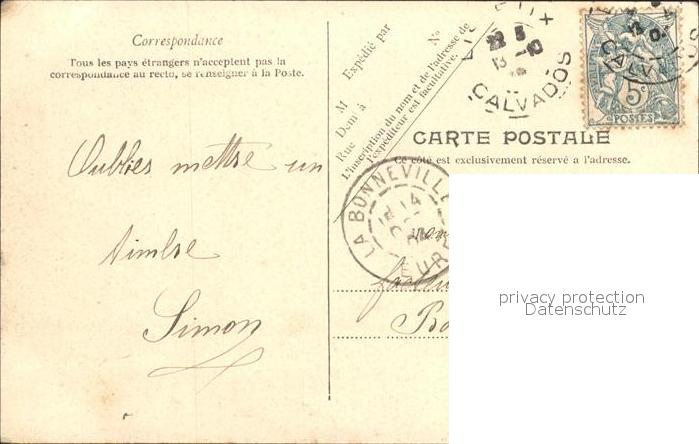 Correspondance
Tous les pays étrangers n'acceptent pas la
correspondance au recto, se renseigner à la Poste.
Oublies mettre un
timbre
Simon
Expédié par
N°
M
Dem' à
Rue
L'inscription du nom et de l'adresse de
l'expéditeur est facultative.
CALVADOS
CALVA
5c
POSTES
CARTE POSTALE
Ce côté est exclusivement réservé à l'adresse.
LA BONNEVILLE
14
EURE
privacy protection
Datenschutz